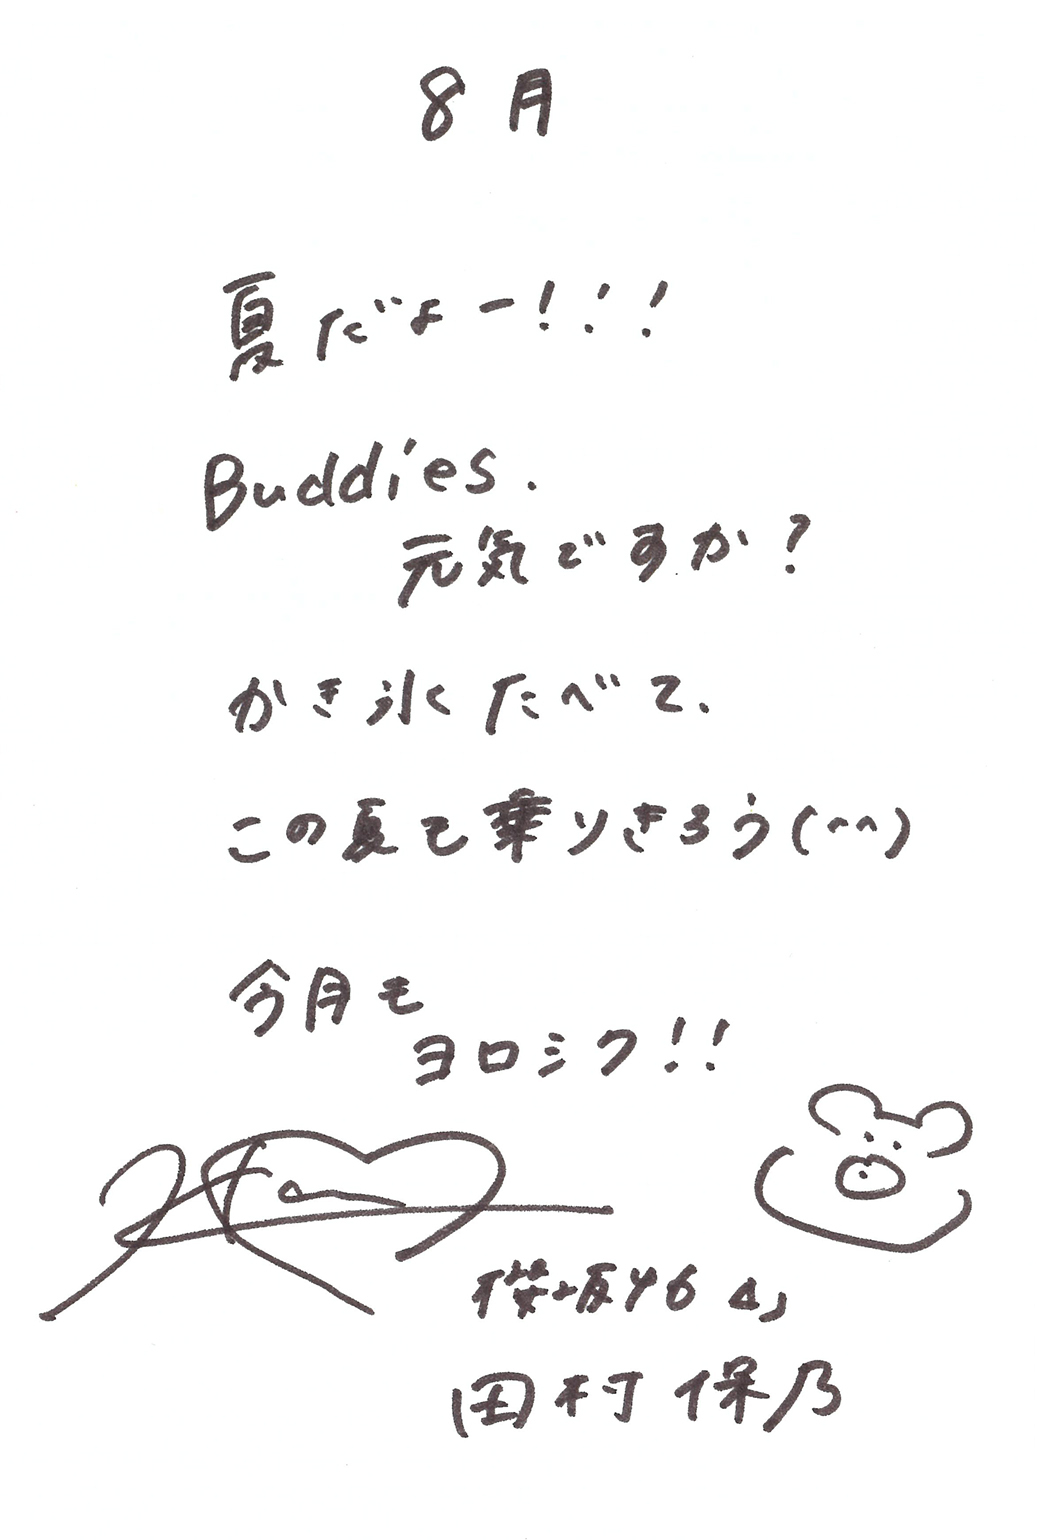 8月
夏だよー!!!
Buddies.
元気ですか?
かき氷たべて.
この夏も乗りきろう(^^)
今月も
ヨロシク!!
櫻坂46
田村保乃